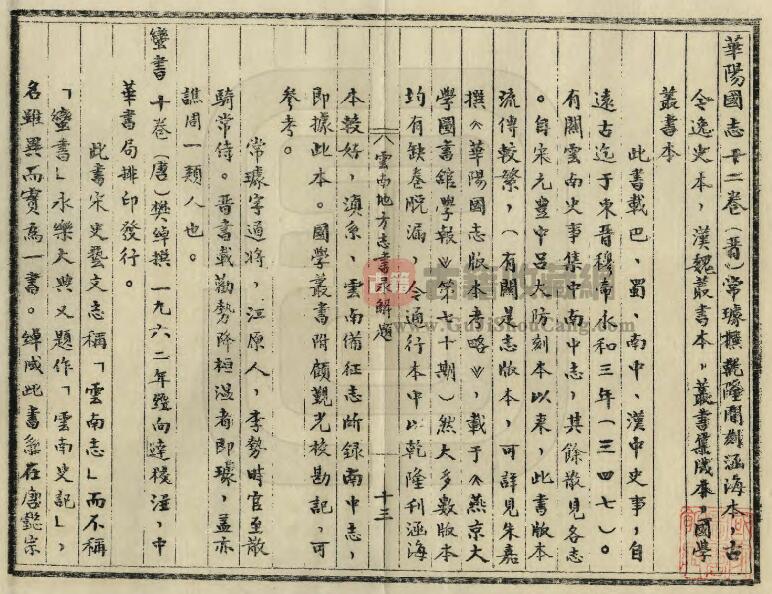 華陽國志十二卷（晋）常璩撰乾隆間刻涵海本，古
今逸史本，漢魏叢書本，叢書集成本，國學
叢書本
此書載巴、蜀、南中、漢中史事，自
遠古迄于東晋穆帝永和三年（三四七）。
有關雲南史事集中南中志，其餘散見各志
。自宋元豐中呂大防刻本以來，此書版本
流傳較繁，（有關是志版本，可詳見朱嘉
撰《華陽國志版本考略》，載于《燕京大
學圖書舘學報》第七十期）然大多數版本
均有缺卷脱漏，今通行本中以乾隆刊涵海
雲南地方志書录解題
十三
本較好，滇系，雲南備征志所録南中志，
即據此本。國學叢書附顧觀光校勘記，可
参考。
常璩字道將，江原人，李勢時官至散
騎常侍。晋書載勸勢降桓温者即璩，盖亦
譙周一類人也。
蠻書十卷（唐）樊綽撰一九六二年經向達校注，中
華書局排印發行。
此書宋史藝文志稱「雲南志」而不稱
「蠻書」永樂大典又題作「雲南史記」，
名雖異而實為一書。綽成此書為在唐懿宗
古籍
古籍收藏網
www.GuJiShouCang.com